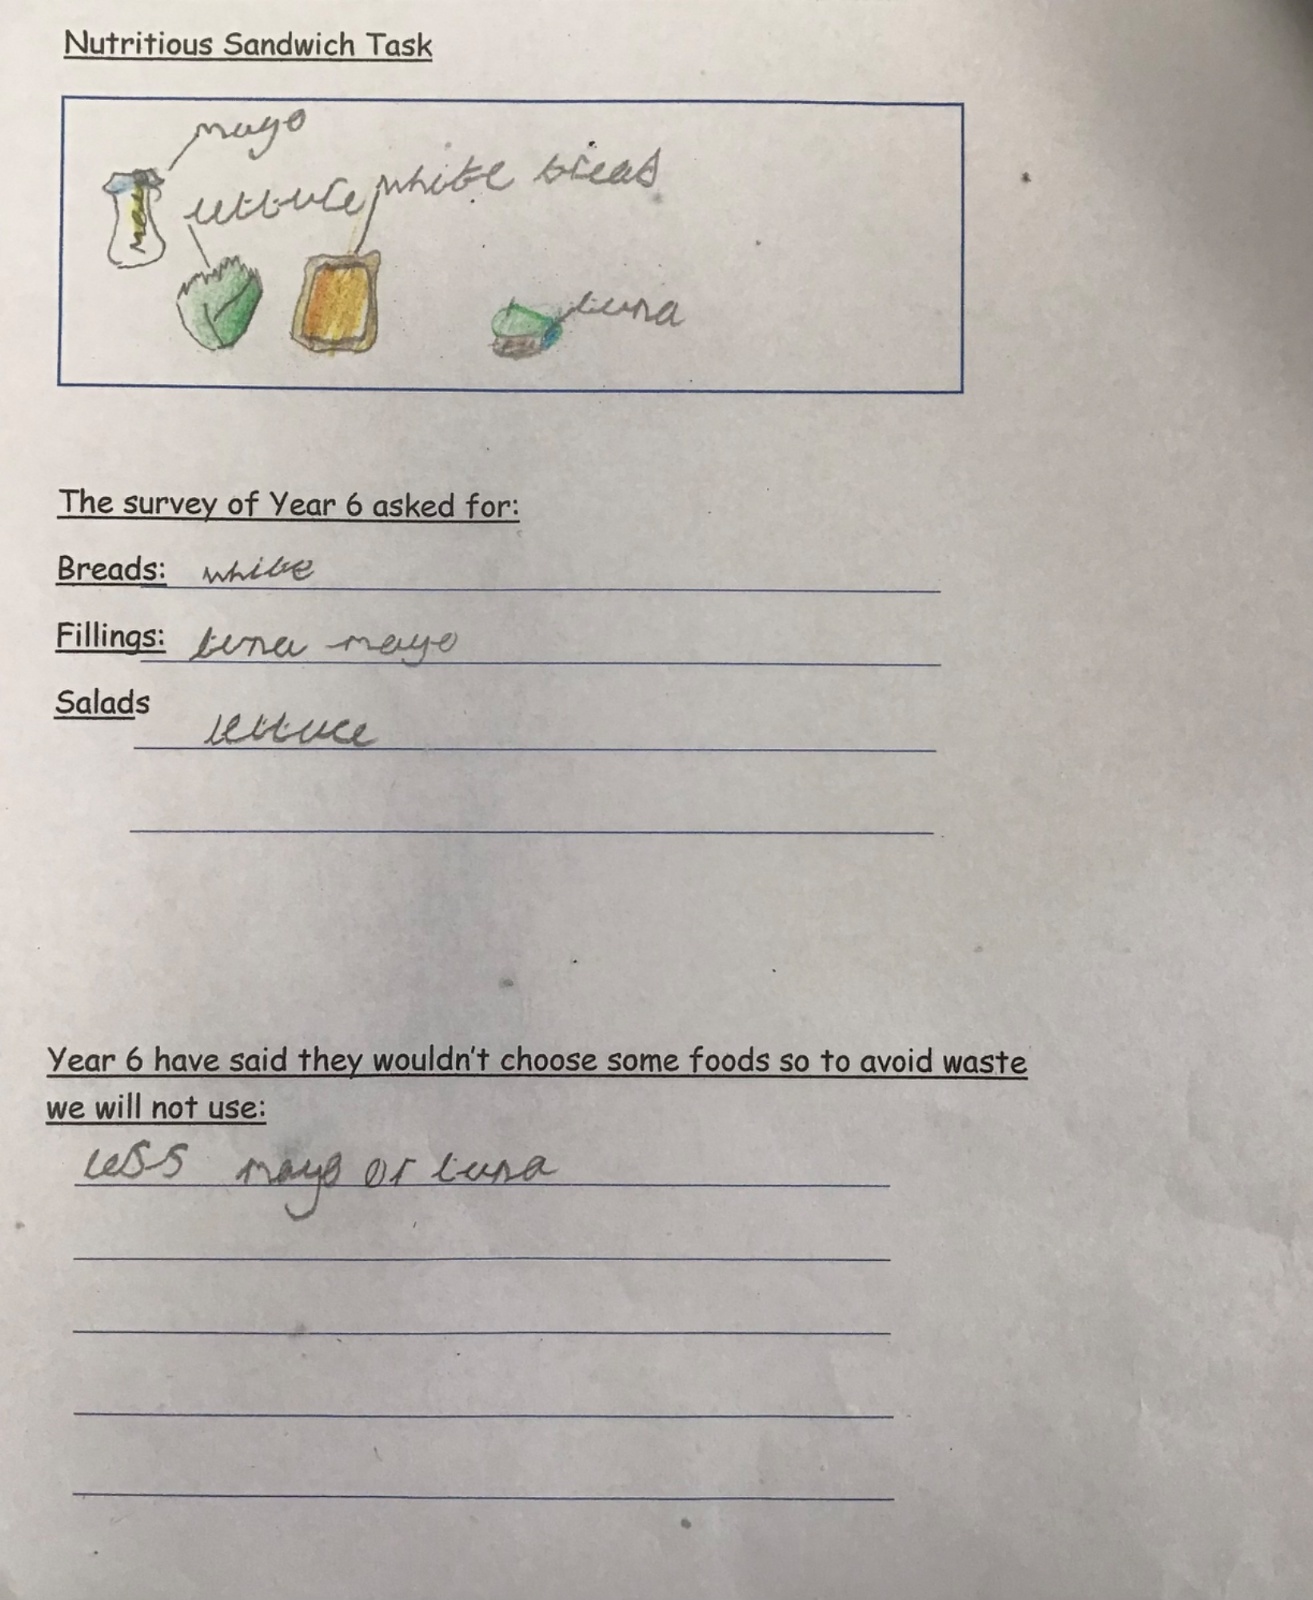 Nutritious Sandwich Task
mayo
lettuce white bread
tuna
The survey of Year 6 asked for:
Breads: white
Fillings: tuna mayo
Salads
lettuce
Year 6 have said they wouldn't choose some foods so to avoid waste
we will not use:
less mayo or tuna